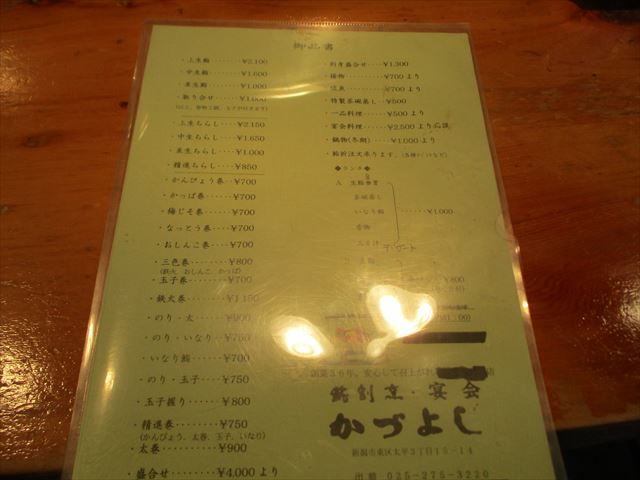 御品書
・上生鮨‥‥‥¥2,100
・中生鮨‥‥‥¥1,600
・並生鮨‥‥‥¥1,000
・散り合せ‥‥¥1,000
・上生ちらし‥‥¥2,150
・中生ちらし‥‥¥1,650
・並生ちらし‥‥¥1,000
・精進ちらし‥‥¥850
・かんぴょう巻‥¥700
・かっぱ巻‥‥¥700
・梅じそ巻‥‥¥700
・なっとう巻‥‥¥700
・おしんこ巻‥‥¥700
・三色巻‥‥‥¥800
(鉄火、おしんこ、かっぱ)
・玉子巻‥‥‥¥700
・鉄火巻‥‥‥¥1,150
・のり・太‥‥‥¥900
・のり・いなり‥¥750
・いなり鮨‥‥¥700
・のり・玉子‥‥¥750
・玉子握り‥‥¥800
・精進巻‥‥‥¥750
(かんぴょう、太巻、玉子、いなり)
・太巻‥‥‥¥900
・盛合せ‥‥‥¥4,000より
・刺身盛合せ‥‥¥1,300
・酢物‥‥‥¥700より
・焼魚‥‥‥¥700より
・特製茶碗蒸し‥¥500
・一品料理‥‥¥500より
・宴会料理‥‥¥2,500より
・鍋物(冬期)‥‥¥1,000より
・鮨折注文承ります。
◆ランチ◆
A 生鮨
茶碗蒸し
いなり鮨 ‥‥¥1,000
香物
みそ汁
デザート
¥800
創業36年。安心して召上がれ
鮨割烹・宴会
かづよし
新潟市東区太平3丁目15-14
出前 025-275-3220